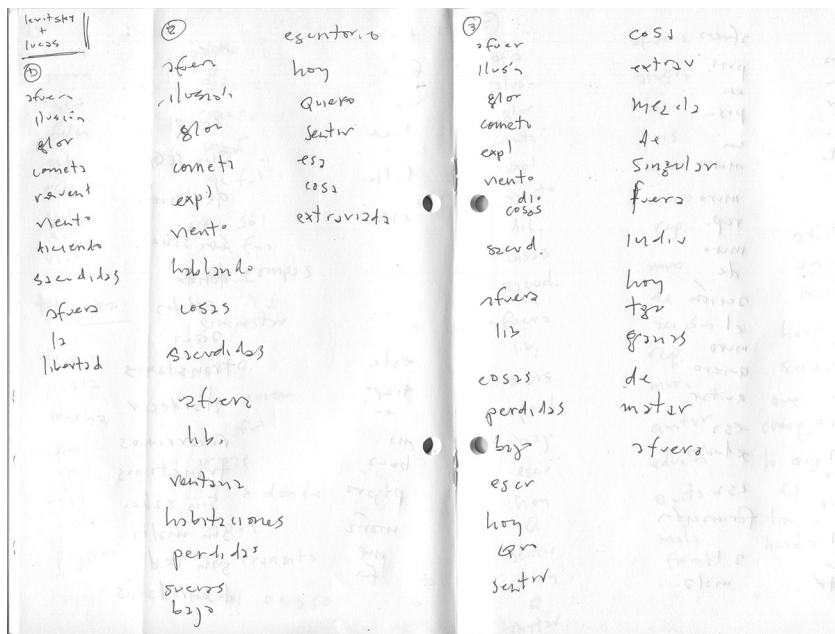 levitsky
+
lucas
1
afuera
ilusión
glor
cometa
revent
viento
haciendo
sacudidas
afuera
la
libertad
2
afuera
ilusión
glor
cometa
expl
viento
hablando
cosas
sacudidas
afuera
lib.
ventana
habitaciones
perdidas
bajo
escritorio
hoy
Quiero
sentir
esa
cosa
extraviada
3
afuer
ilusin
glor
cometa
expl
viento
dic
cosas
sacud.
afuera
lib
cosas
perdidas
bajo
escr
hoy
sentir
cosa
extrav
mezcla
de
singular
fuera
indiv
hoy
tgo
ganas
de
matar
afuera